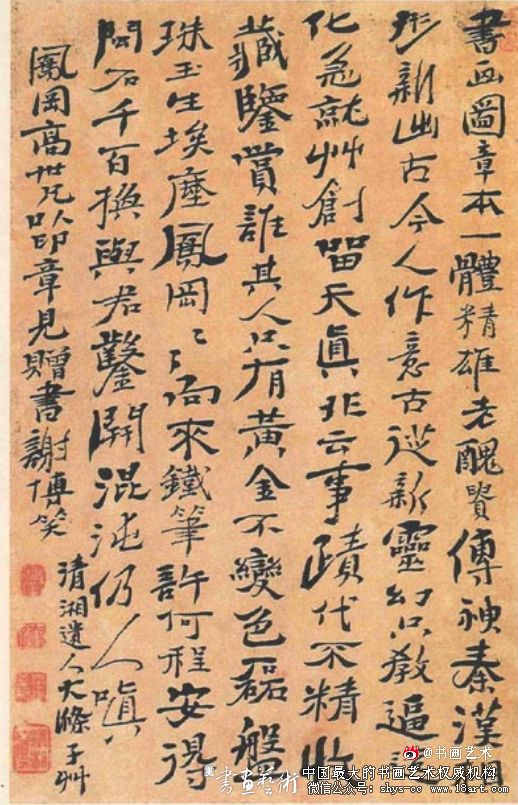 書画圖章本一體精雄老醜貴傳神秦漢相
形新出古今人作意古從新靈幻只教逼造
化急就艸創留天真非云事蹟代不精收
藏鑒賞誰其人只有黃金不變色磊盤
珠玉生埃塵鳳岡〻〻向來鐵筆許何程安得
石千百換與君鑿開混沌仍人嗔
鳳岡高世兄以印章見贈書謝博笑
清湘遺人大滌子艸
@书画艺术
書畫藝術 中国最大的书画艺术权威机构
微信公众号：shys-cc www.18art.com